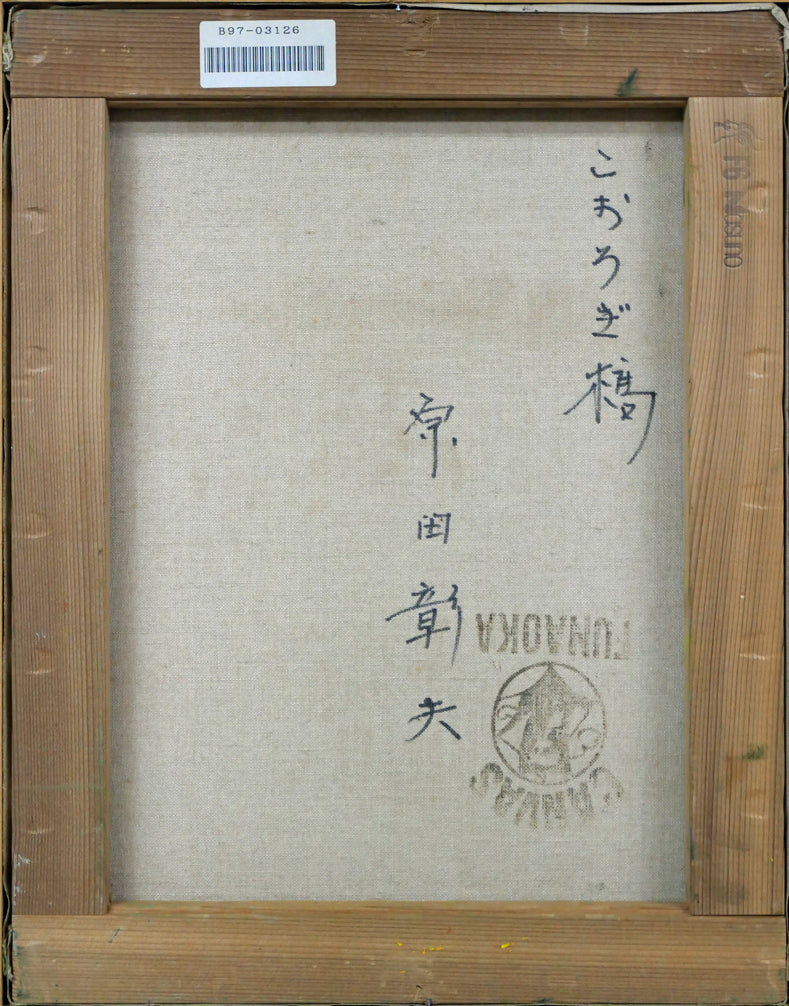 B97-03126
こおろぎ橋
原田彰夫
FUNAOKA
CANVAS
F6